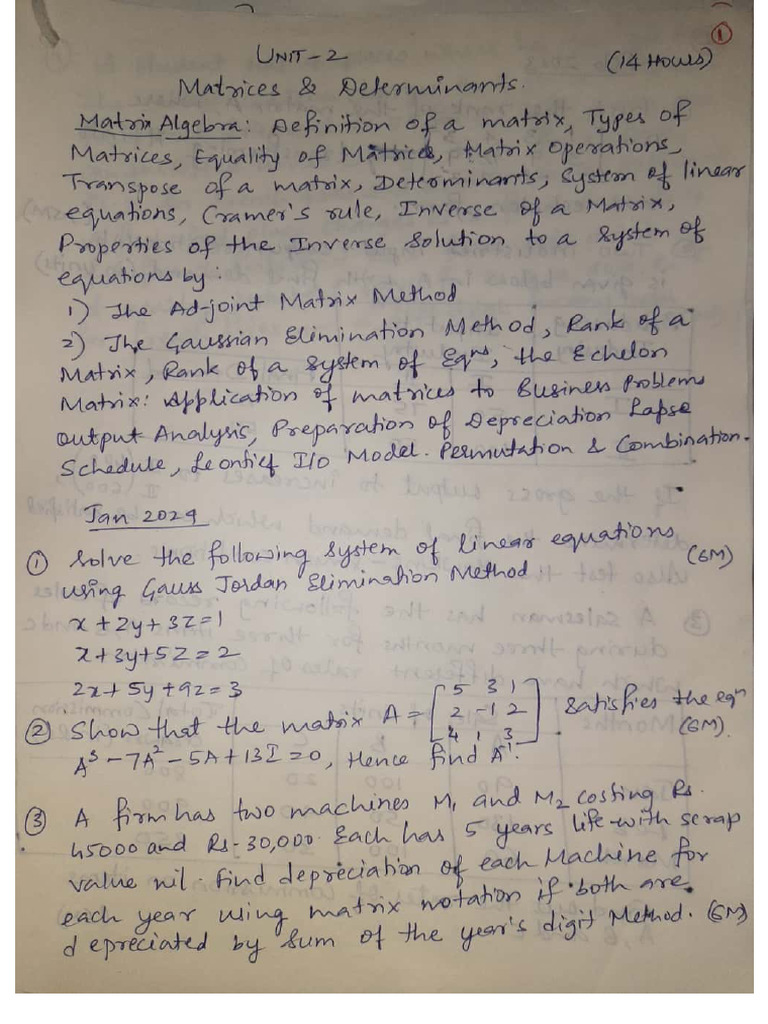 ①
UNIT-2 (14 Hours)
Matrices & Determinants.
Matrix Algebra: Definition of a matrix, Types of
Matrices, Equality of Matrices, Matrix Operations,
Transpose of a matrix, Determinants, System of linear
equations, Cramer's rule, Inverse of a Matrix,
Properties of the Inverse Solution to a System of
equations by:
1) The Ad-joint Matrix Method
2) The Gaussian Elimination Method, Rank of a
Matrix, Rank of a System of Eqns, the Echelon
Matrix: Application of matrices to Business Problems
output Analysis, Preparation of Depreciation Lapse
Schedule, Leontief I/o Model. Permutation & Combination.
Jan 2024
① Solve the following System of linear equations
using Gauss Jordan Elimination Method (6M)
x + 2y + 3z = 1
x + 3y + 5z = 2
2x + 5y + 9z = 3
② Show that the matrix A = [5 3 1
2 -1 2
4 1 3] satisfies the eqn
A³ - 7A² - 5A + 13I = 0, Hence find A⁻¹. (6M)
③ A firm has two machines M₁ and M₂ costing Rs.
45000 and Rs-30,000. Each has 5 years life with scrap
value nil. Find depreciation of each Machine for
each year using matrix notation if both are
depreciated by Sum of the year's digit Method. (6M)